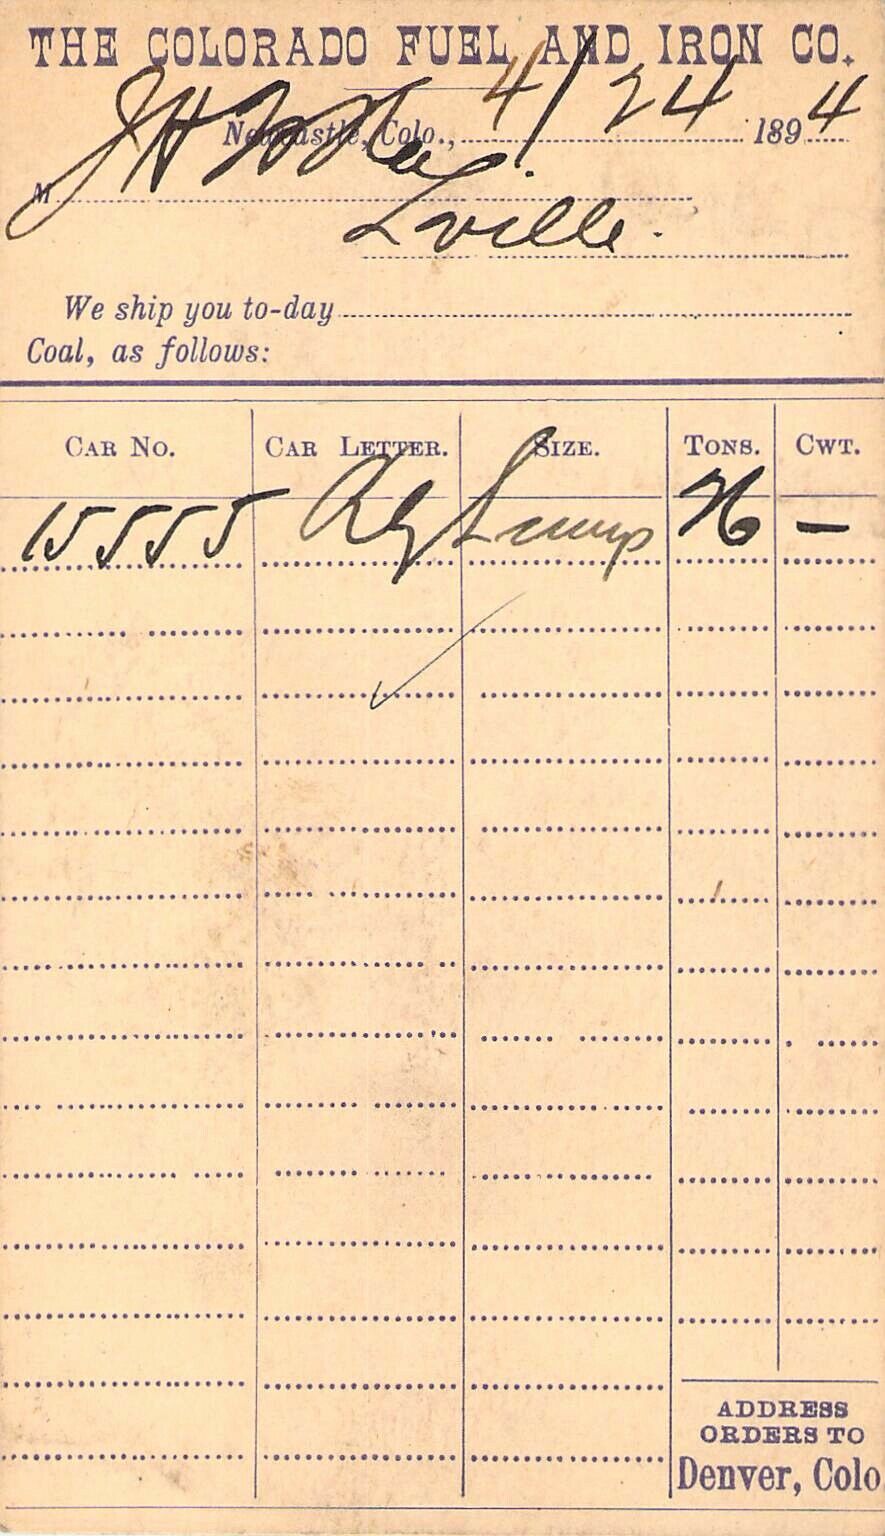 THE COLORADO FUEL AND IRON CO.
Newcastle, Colo., 4/24 1894
M J H
Lville.
We ship you to-day
Coal, as follows:
CAR NO. CAR LETTER. SIZE. TONS. CWT.
15555 Rg Lump 16 —
ADDRESS
ORDERS TO
Denver, Colo